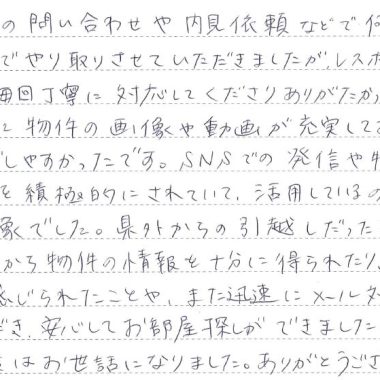 の問い合わせや内見依頼などで何
でやり取りさせていただきましたが、レスポ
毎回丁寧に対応してくださりありがたか
物件の画像や動画が充実して
しやすかったです。SNSでの発信や
を積極的にされていて、活用しているの
象でした。県外からの引越しだった
から物件の情報を十分に得られたり、
感じられたことや、また迅速にメール
だき、安心してお部屋探しができました
はお世話になりました。ありがとうござ